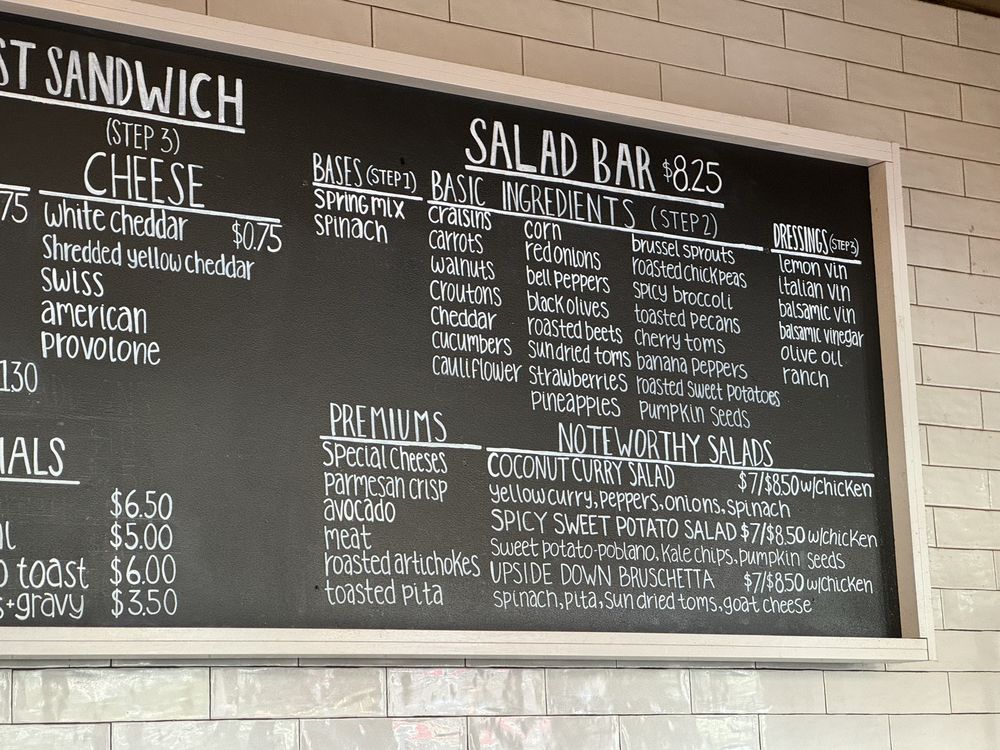 ST SANDWICH
(STEP 3)
CHEESE
75
white cheddar $0.75
Shredded yellow cheddar
swiss
american
provolone
130
IALS
$6.50
$5.00
toast $6.00
s+gravy $3.50
SALAD BAR $8.25
BASES (STEP 1)
spring mix
spinach
BASIC INGREDIENTS (STEP 2)
craisins
carrots
walnuts
croutons
cheddar
cucumbers
cauliflower
corn
red onions
bell peppers
black olives
roasted beets
sundried toms
strawberries
pineapples
brussel sprouts
roasted chickpeas
spicy broccoli
toasted pecans
cherry toms
banana peppers
roasted sweet potatoes
pumpkin seeds
DRESSINGS (STEP 3)
lemon vin
italian vin
balsamic vin
balsamic vinegar
olive oil
ranch
PREMIUMS
special cheeses
parmesan crisp
avocado
meat
roasted artichokes
toasted pita
NOTEWORTHY SALADS
COCONUT CURRY SALAD $7/$8.50 w/chicken
yellow curry, peppers, onions, spinach
SPICY SWEET POTATO SALAD $7/$8.50 w/chicken
sweet potato-poblano, kale chips, pumpkin seeds
UPSIDE DOWN BRUSCHETTA $7/$8.50 w/chicken
spinach, pita, sundried toms, goat cheese